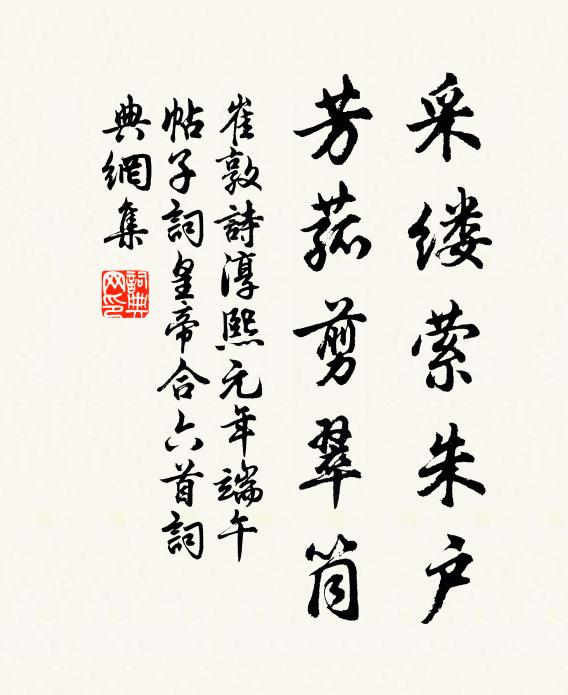 采缕萦朱户
芳菰剪翠筒
崔敦詩淳熙元年端午
帖子詞皇帝合六首詞
典網集
詞典網印